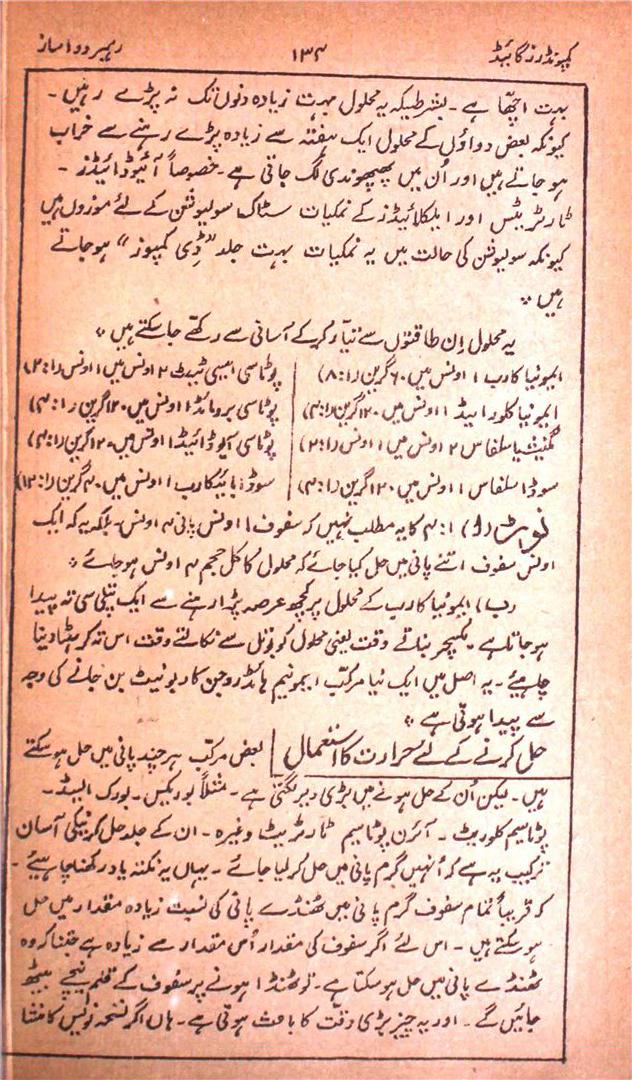 کمپونڈرز گائیڈ ۱۳۴ رہبر دواساز
بہت اچھا ہے ۔ بشرطیکہ یہ محلول بہت زیادہ دنوں تک نہ پڑے رہیں ۔
کیونکہ بعض دواؤں کے محلول ایک ہفتہ سے زیادہ پڑے رہنے سے خراب
ہو جاتے ہیں اور اُن میں پھپھوندی لگ جاتی ہے ۔ خصوصاً آئیوڈائیڈز ۔
ٹارٹریٹس اور ایلکلائیڈز کے نمکیات سٹاک سولیوشن کے لئے موزوں ہیں
کیونکہ سولیوشن کی حالت میں یہ نمکیات بہت جلد ”ڈِی کمپوز“ ہو جاتے
ہیں ٭
یہ محلول اِن طاقتوں سے تیار کر کے آسانی سے رکھے جا سکتے ہیں ٭
ایمونیا کارب ۱ اونس میں ۶۰ گرین (۱:۸)
ایمونیا کلورائیڈ ۱ اونس میں ۱۲۰ گرین (۱:۴)
مگنیشیا سلفاس ۲ اونس میں ۱ اونس (۱:۲)
سوڈا سلفاس ۱ اونس میں ۱۲۰ گرین (۱:۴)
پوٹاسی ایسی ٹیٹ ۲ اونس میں ۱ اونس (۱:۲)
پوٹاسی برومائڈ ۱ اونس میں ۱۲۰ گرین (۱:۴)
پوٹاسی آیوڈائیڈ ۱ اونس میں ۱۲۰ گرین (۱:۴)
سوڈا بائیکارب ۱ اونس میں ۴۰ گرین (۱:۱۲)
نوٹ (ا) ۱:۴ کا یہ مطلب نہیں کہ سفوف ۱ اونس پانی ۴ اونس ۔ بلکہ یہ کہ ایک
اونس سفوف اتنے پانی میں حل کیا جائے کہ محلول کا کل حجم ۴ اونس ہو جائے ٭
(ب) ایمونیا کارب کے محلول پر کچھ عرصہ پڑا رہنے سے ایک پتلی سی تہ پیدا
ہو جاتی ہے ۔ مکسچر بناتے وقت یعنی محلول کو بوتل سے نکالتے وقت اس تہ کو ہٹا دینا
چاہیئے ۔ یہ اصل میں ایک نیا مرکب ایمونیم ہائڈروجن کاربونیٹ بن جانے کی وجہ
سے پیدا ہوتی ہے ٭
حل کرنے کے لئے حرارت کا استعمال بعض مرکب ہر چند پانی میں حل ہو سکتے
ہیں ۔ لیکن اُن کے حل ہونے میں بڑی دیر لگتی ہے ۔ مثلاً بوریکس ۔ بورک ایسڈ ۔
پوٹاسیم کلوریٹ ۔ آئرن پوٹاسیم ٹارٹریٹ وغیرہ ۔ ان کے جلد حل کرنیکی آسان
ترکیب یہ ہے کہ اُنہیں گرم پانی میں حل کر لیا جائے ۔ یہاں یہ نکتہ یاد رکھنا چاہیئے ۔
کہ قریباً تمام سفوف گرم پانی میں ٹھنڈے پانی کی نسبت زیادہ مقدار میں حل
ہو سکتے ہیں ۔ اس لئے اگر سفوف کی مقدار اُس مقدار سے زیادہ ہے جتنا کہ وہ
ٹھنڈے پانی میں حل ہو سکتا ہے ۔ تو ٹھنڈا ہونے پر سفوف کے قلم نیچے بیٹھ
جائیں گے ۔ اور یہ چیز بڑی دقت کا باعث ہوتی ہے ۔ ہاں اگر نسخہ نویس کا منشا